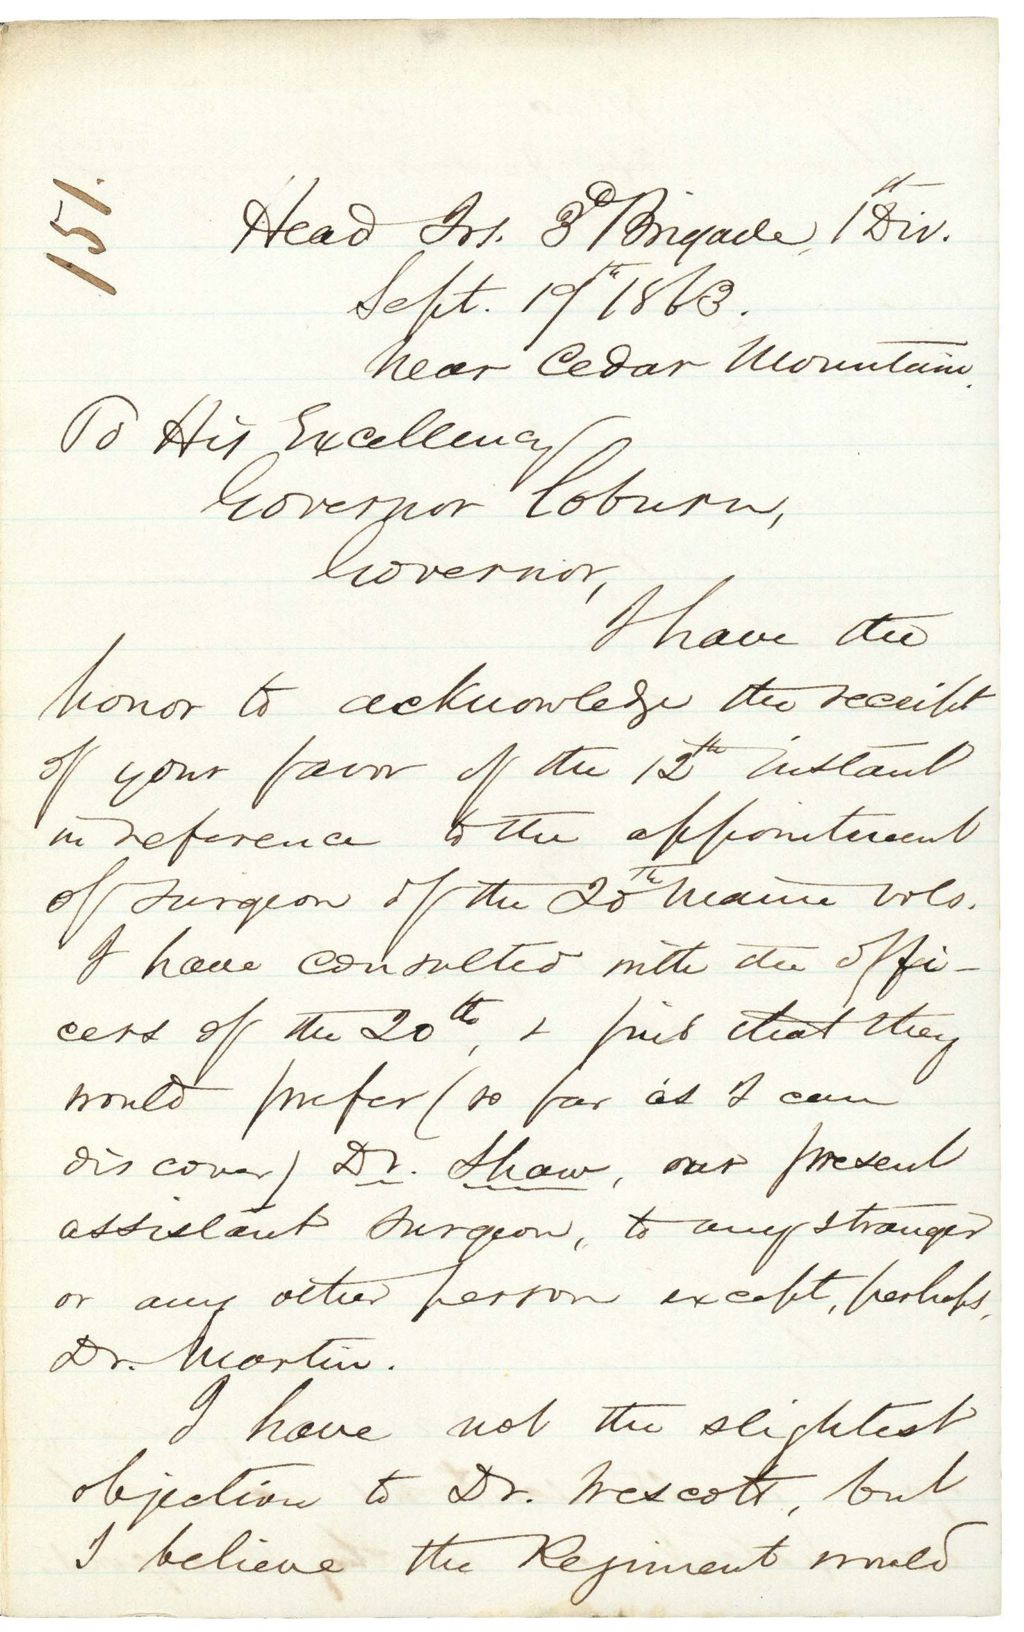 151.
Head Qrs. 3d Brigade, 1st Div.
Sept. 19th 1863.
near Cedar Mountain.
To His Excellency
Governor Coburn,
Governor,
I have the
honor to acknowledge the receipt
of your favor of the 12th instant
in reference to the appointment
of surgeon of the 20th Maine vols.
I have consulted with the offi-
cers of the 20th, & find that they
would prefer (so far as I can
discover) Dr. Shaw, our present
assistant surgeon, to any stranger
or any other person except, perhaps,
Dr. Martin.
I have not the slightest
objection to Dr. Wescott, but
I believe the Regiment would